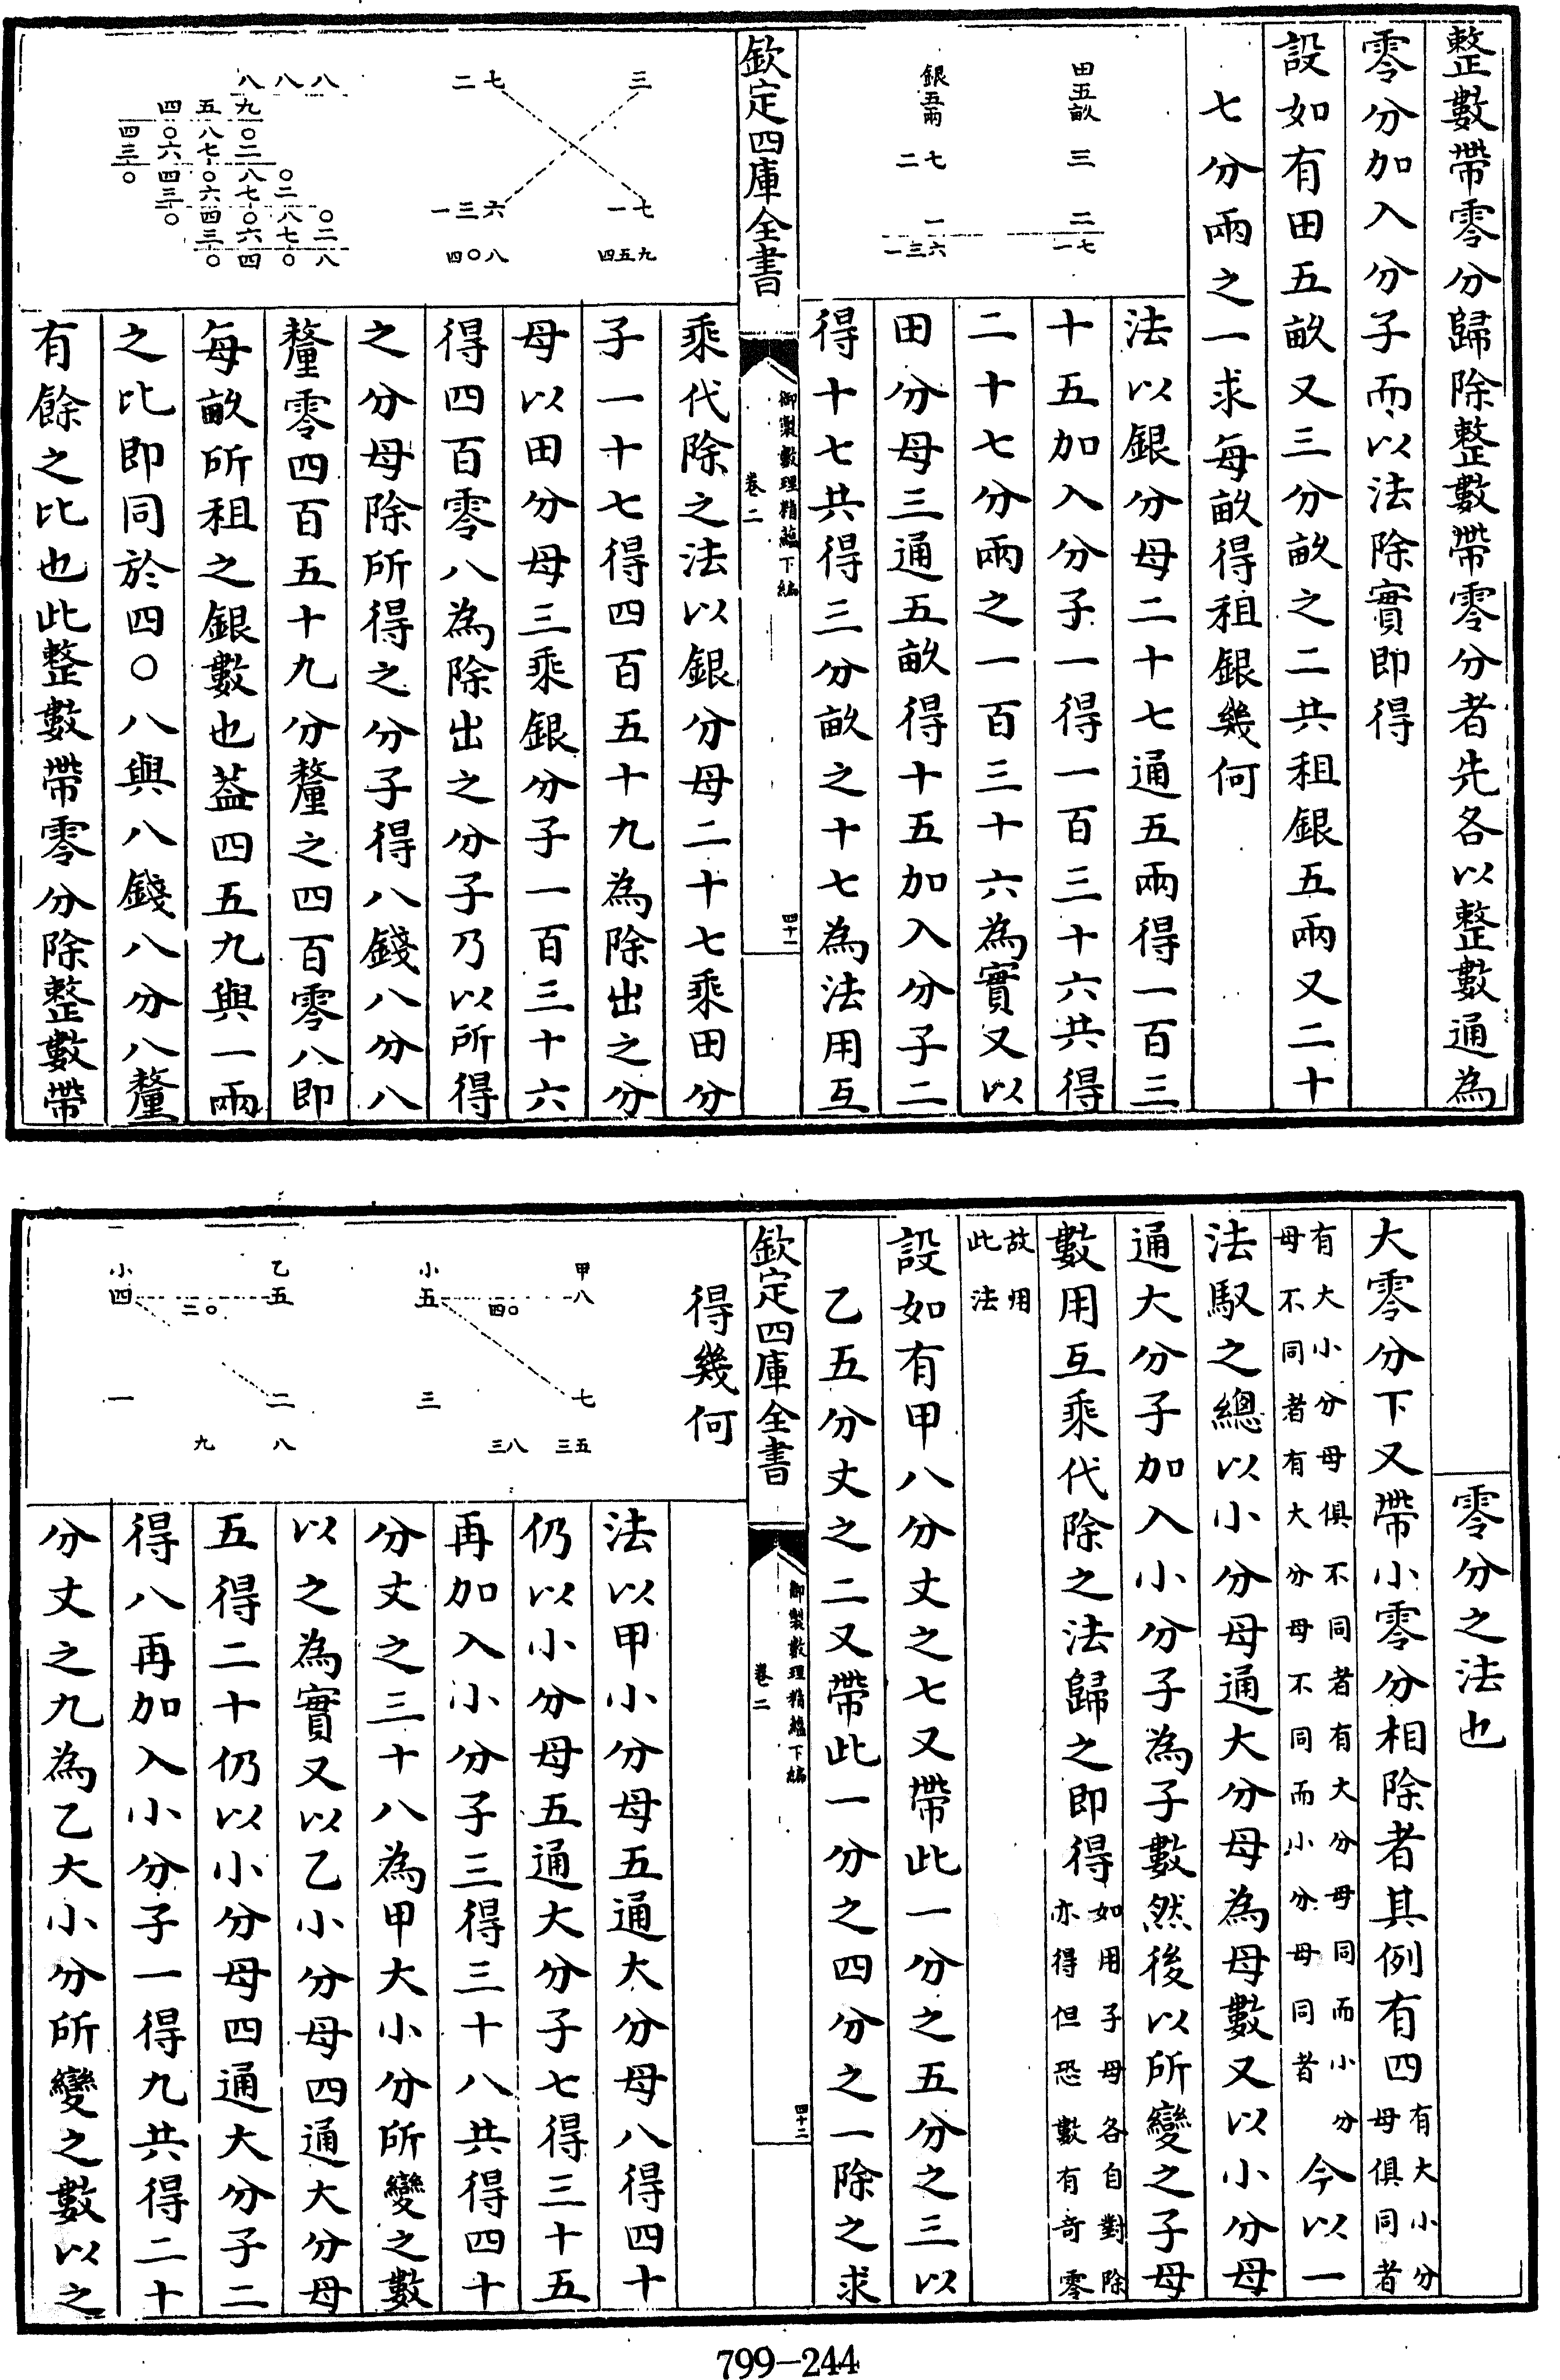 整數帶零分歸除整數帶零分者先各以整數通為
零分加入分子而以法除實即得
設如有田五畝又三分畝之二共租銀五兩又二十
七分兩之一求每畝得租銀幾何
田五畝 三 二 一七
銀五兩 二七 一 一三六
法以銀分母二十七通五兩得一百三
十五加入分子一得一百三十六共得
二十七分兩之一百三十六為實又以
田分母三通五畝得十五加入分子二
得十七共得三分畝之十七為法用互
欽定四庫全書
御製數理精蘊下編
卷二
四十一
三 一七 四五九
二七 一三六 四〇八
八八八
四五九
四〇八〇
二八
乘代除之法以銀分母二十七乘田分
子一十七得四百五十九為除出之分
母以田分母三乘銀分子一百三十六
得四百零八為除出之分子乃以所得
之分母除所得之分子得八錢八分八
釐零四百五十九分釐之四百零八即
每畝所租之銀數也葢四五九與一兩
之比即同於四〇八與八錢八分八釐
有餘之比也此整數帶零分除整數帶
零分之法也
大零分下又帶小零分相除者其例有四
有大小分
母俱同者
有大小分母俱不同者有大分母同而小分
母不同者有大分母不同而小分母同者
今以一
法馭之總以小分母通大分母為母數又以小分母
通大分子加入小分子為子數然後以所變之子母
數用互乘代除之法歸之即得
如用子母各自對除
亦得但恐數有奇零
故用
此法
設如有甲八分丈之七又帶此一分之五分之三以
乙五分丈之二又帶此一分之四分之一除之求
欽定四庫全書
御製數理精蘊下編
卷二
四十二
得幾何
甲八 七 三五
小五 四〇 三 三八
乙五 二 八
小四 二〇 一 九
法以甲小分母五通大分母八得四十
仍以小分母五通大分子七得三十五
再加入小分子三得三十八共得四十
分丈之三十八為甲大小分所變之數
以之為實又以乙小分母四通大分母
五得二十仍以小分母四通大分子二
得八再加入小分子一得九共得二十
分丈之九為乙大小分所變之數以之
799-244